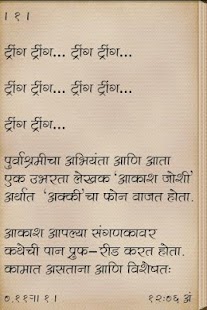 । १ ।
ट्रींग ट्रींग... ट्रींग ट्रींग...
ट्रींग ट्रींग... ट्रींग ट्रींग...
ट्रींग ट्रींग...
पुर्वाश्रमीचा अभियंता आणि आता
एक उभरता लेखक 'आकाश जोशी'
अर्थात 'अक्की'चा फोन वाजत होता.
आकाश आपल्या संगणकावर
कथेची पान प्रुफ-रीड करत होता.
कामात असताना आणि विशेषतः
१२:०६ अं